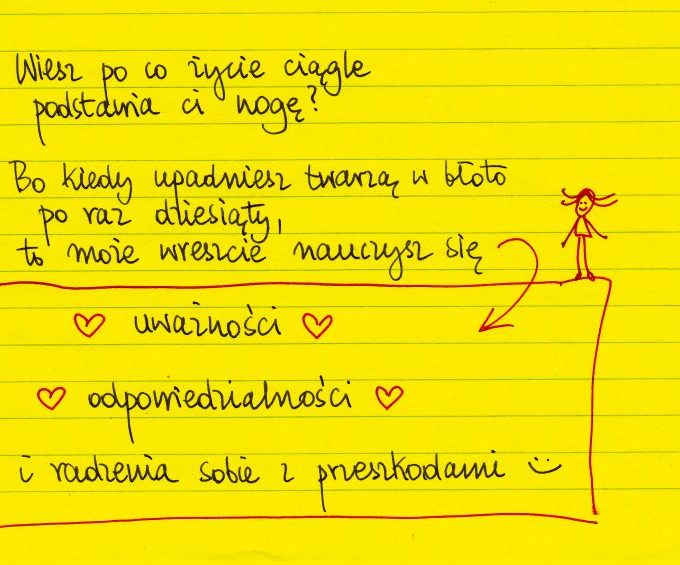 Wiesz po co życie ciągle
podstawia ci nogę?
Bo kiedy upadniesz twarzą w błoto
po raz dziesiąty,
to może wreszcie nauczysz się
uważności
odpowiedzialności
i radzenia sobie z przeszkodami